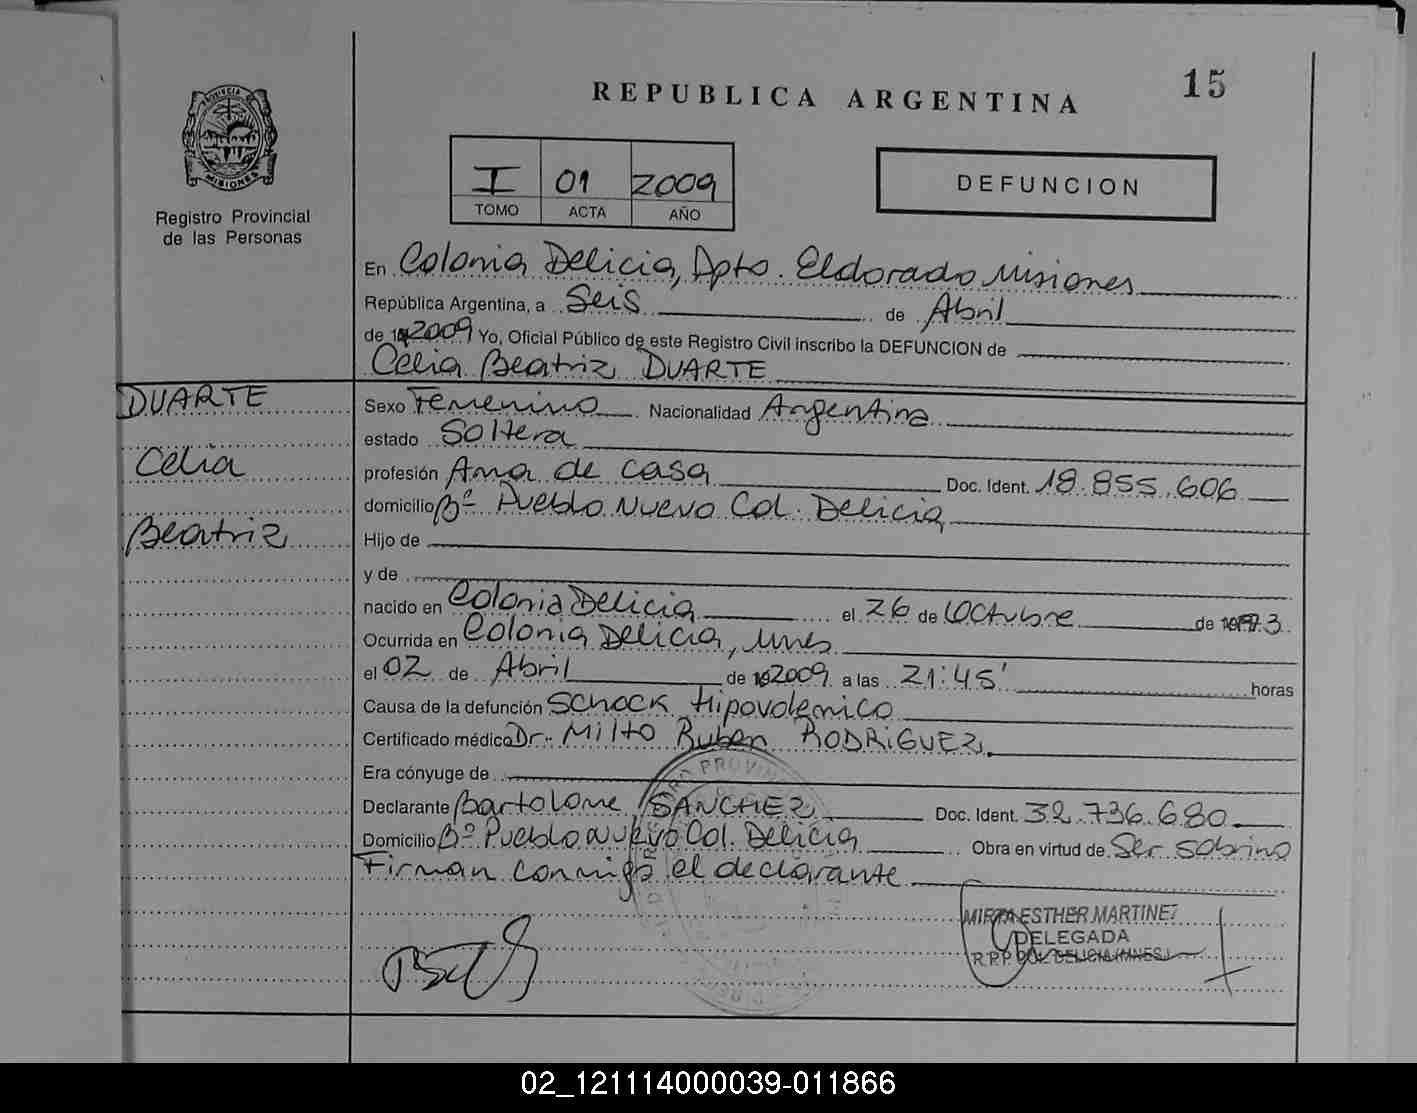 15
REPUBLICA ARGENTINA
PROVINCIA DE
MISIONES
Registro Provincial
de las Personas
I 01 2009
TOMO ACTA AÑO
DEFUNCION
En Colonia Delicia, Dpto. Eldorado Misiones
República Argentina, a Seis de Abril
de 2009 Yo, Oficial Público de este Registro Civil inscribo la DEFUNCION de
Celia Beatriz DUARTE
DUARTE
Celia
Beatriz
Sexo Femenino Nacionalidad Argentina
estado Soltera
profesión Ama de casa Doc. Ident. 18.855.606
domicilio Bº Pueblo Nuevo Col. Delicia
Hijo de
y de
nacido en Colonia Delicia el 26 de Octubre de
Ocurrida en Colonia Delicia, Mnes
el 02 de Abril de 2009 a las 21:45' horas
Causa de la defunción Schock Hipovolemico
Certificado médico Dr. Milto Ruben RODRIGUEZ.
Era cónyuge de
Declarante Bartolome SANCHEZ Doc. Ident. 32.736.680
Domicilio Bº Pueblo Nuevo Col. Delicia Obra en virtud de Ser sobrino
Firman conmigo el declarante
MIRTA ESTHER MARTINEZ
DELEGADA
R.P.P. COL. DELICIA (MNES.)
02_121114000039-011866